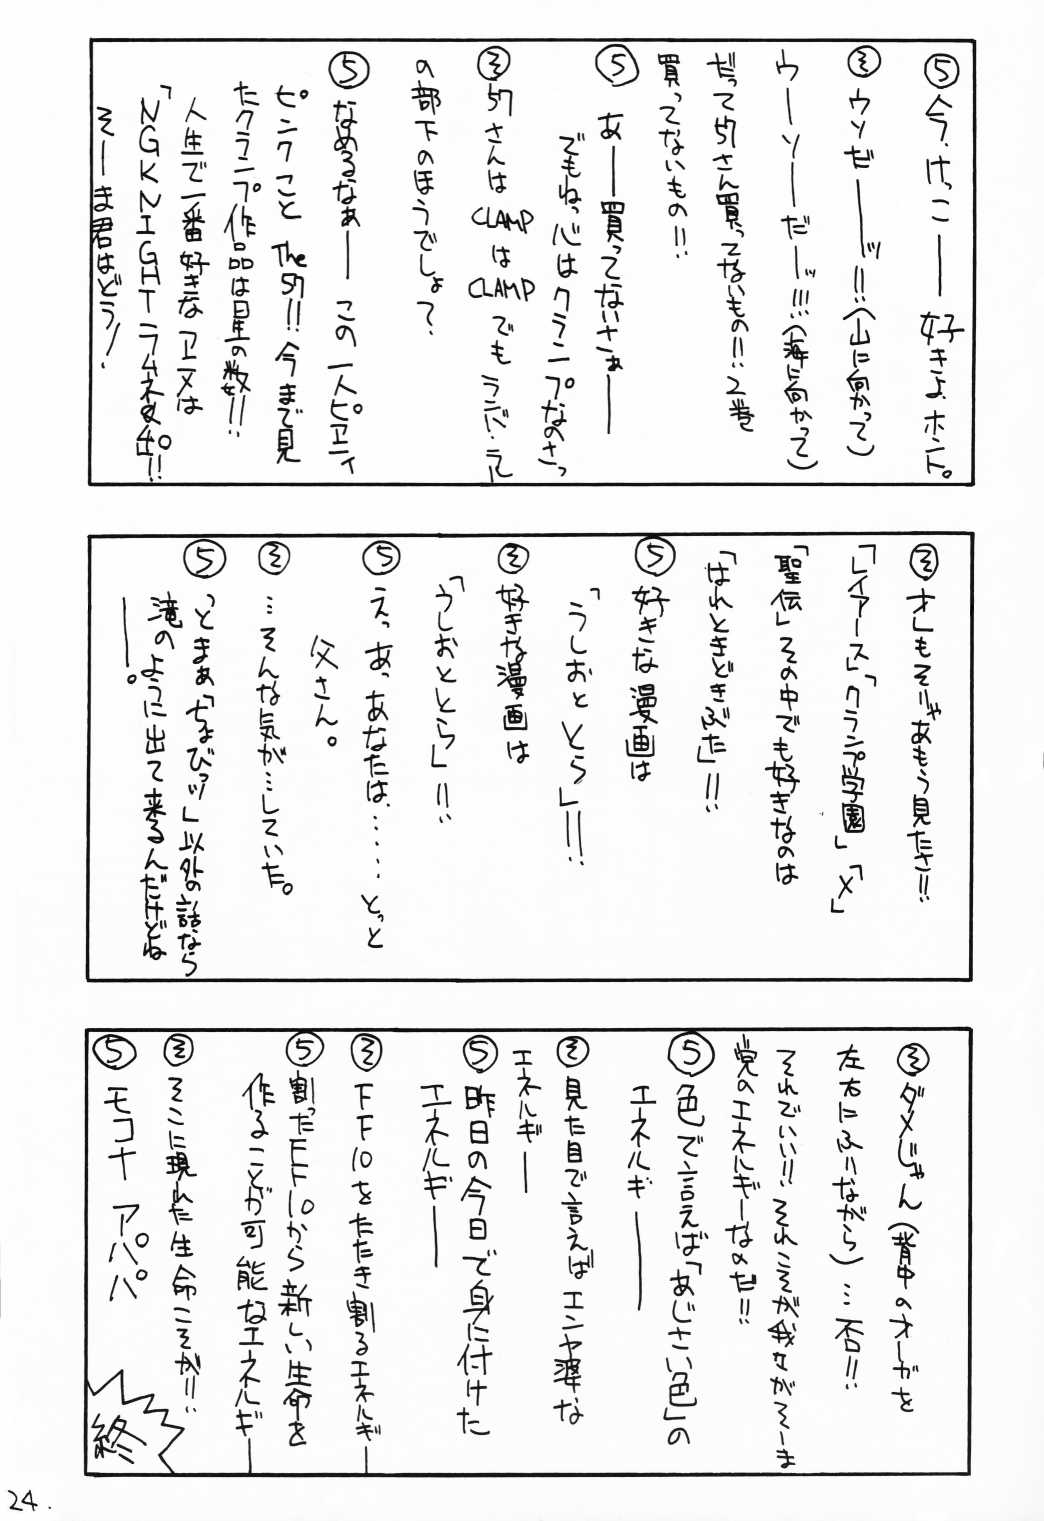 ⑤今、けっこー好きよ、ホント。
㋞ウソゼーーッ!!(山に向かって)
ウーソーだーッ!!!(海に向かって)
だって57さん買ってないもの!!2巻
買ってないもの!!
⑤あー買ってないさぁー
でもねっ心はクランプなのさっ
㋞57さんはCLAMPはCLAMPでもランバ・ラル
の部下のほうでしょ?
⑤なめるなぁー この一人ピヱニィ
ピンクこと The 57!! 今まで見
たクランプ作品は星の数!!
人生で一番好きなアニメは
「NGKNIGHTラムネ&40」!!
そーま君はどう!
㋞オレもそりゃあもう見たさ!!
「レイアース」「クランプ学園」「X」
「聖伝」その中でも好きなのは
「はれときどきぶた」!!
⑤好きな漫画は
「うしおととら」!!!
㋞好きな漫画は
「うしおととら」!!
⑤えっ あっ あなたは‥‥‥とっと
父さん。
㋞…そんな気が…していた。
⑤っとまぁ「ちょびっツ」以外の話なら
滝のように出て来るんだけどね
ー。
㋞ダメじゃん(背中のオーガを
左右にふりながら)…否!!
それでいい!!それこそが我々がそーま
党のエネルギーなのだ!!
⑤色で言えば「あじさい色」の
エネルギー
㋞見た目で言えばエンヤ婆な
エネルギー
⑤昨日の今日で身に付けた
エネルギー
㋞FF10をたたき割るエネルギー
⑤割ったFF10から新しい生命を
作ることが可能なエネルギー
㋞そこに現れた生命こそが!!
⑤モコナ アパパ
終
24.